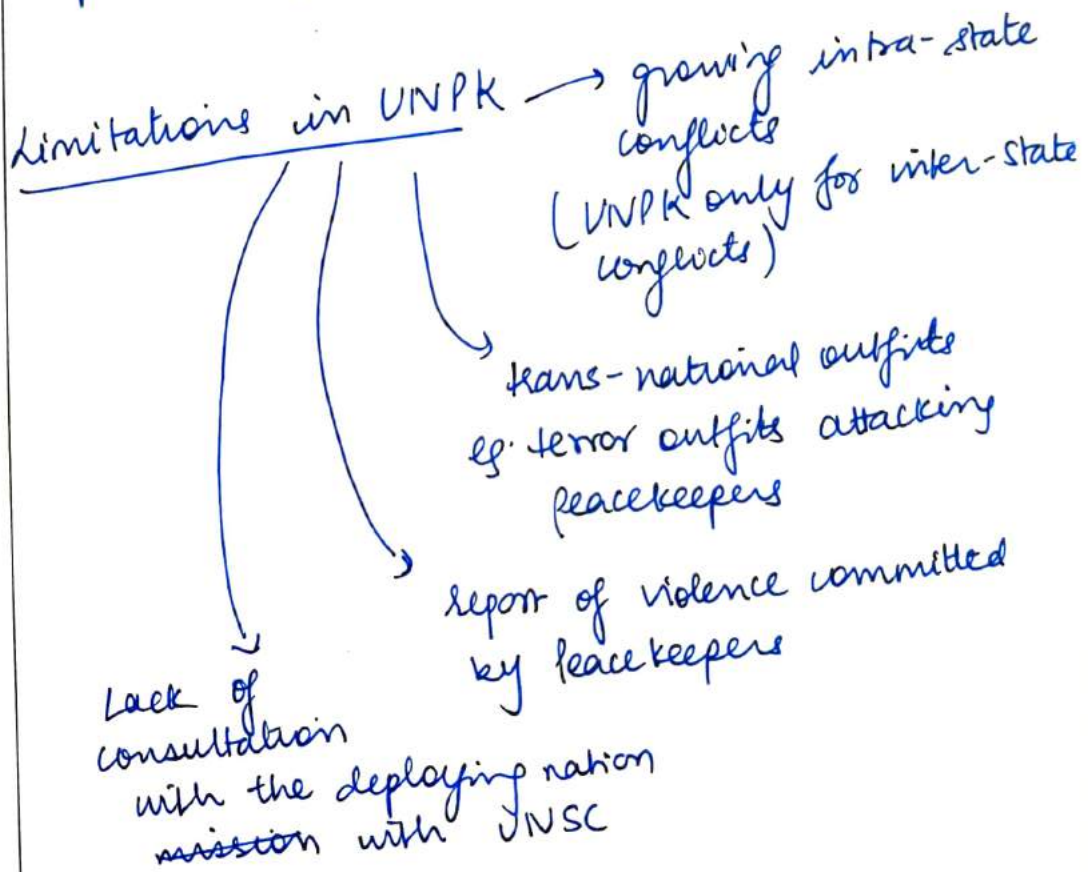 Limitations in UNPK → growing intra-state
conflicts
(UNPK only for inter-state
conflicts)
trans-national outfits
eg. terror outfits attacking
peacekeepers
report of violence committed
by peacekeepers
Lack of
consultation
with the deploying nation
mission with UNSC